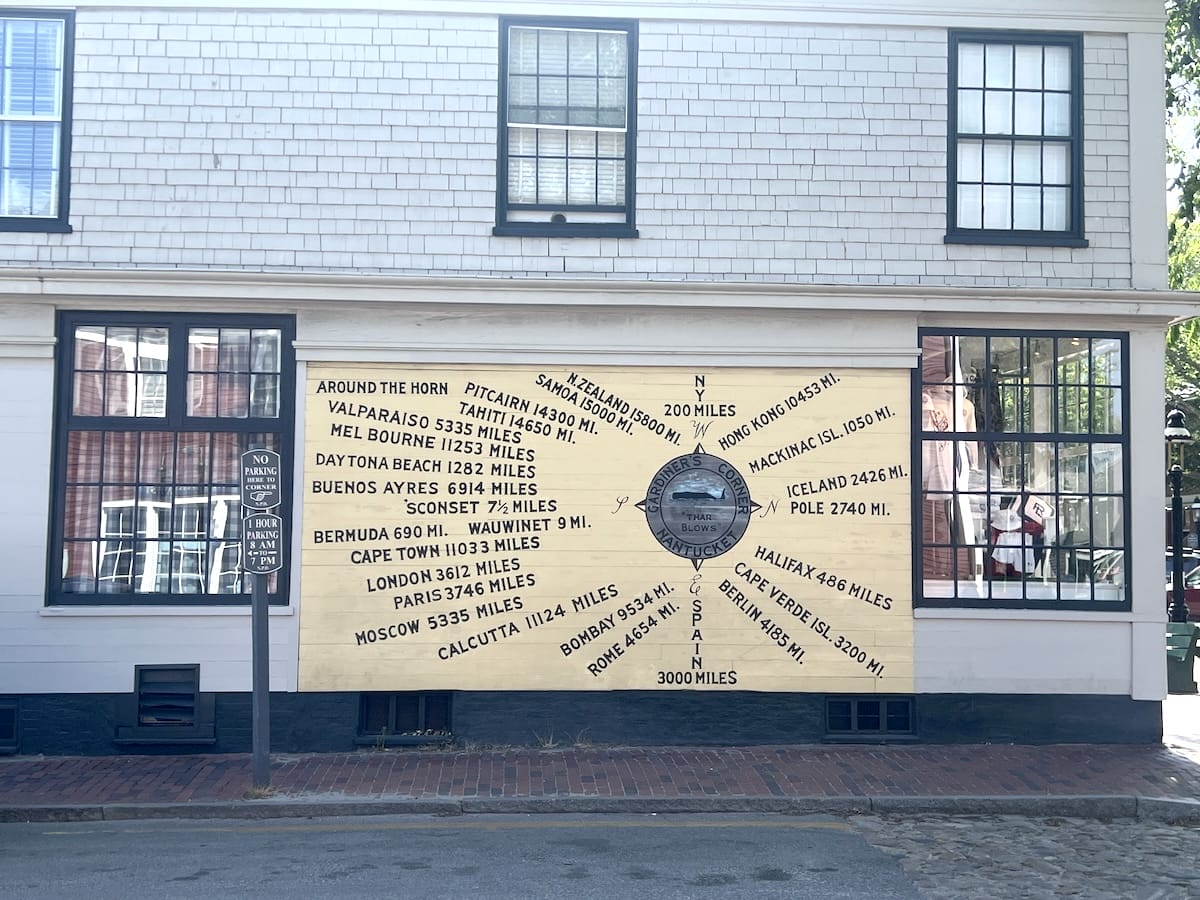 AROUND THE HORN
PITCAIRN 14300 MI.
SAMOA 15000 MI.
N.ZEALAND 15800 MI.
VALPARAISO 5335 MILES
TAHITI 14650 MI.
MEL BOURNE 11253 MILES
DAYTONA BEACH 1282 MILES
BUENOS AYRES 6914 MILES
'SCONSET 7½ MILES
BERMUDA 690 MI.
WAUWINET 9 MI.
CAPE TOWN 11033 MILES
LONDON 3612 MILES
PARIS 3746 MILES
MOSCOW 5335 MILES
CALCUTTA 11124 MILES
BOMBAY 9534 MI.
ROME 4654 MI.
NY
200 MILES
W
HONG KONG 10453 MI.
MACKINAC ISL. 1050 MI.
ICELAND 2426 MI.
POLE 2740 MI.
S
N
GARDINER'S CORNER
"THAR
BLOWS"
NANTUCKET
E
SPAIN
3000 MILES
HALIFAX 486 MILES
CAPE VERDE ISL. 3200 MI.
BERLIN 4185 MI.
NO
PARKING
HERE TO
CORNER
N.P.D.
1 HOUR
PARKING
8 AM
TO
7 PM
N.P.D.